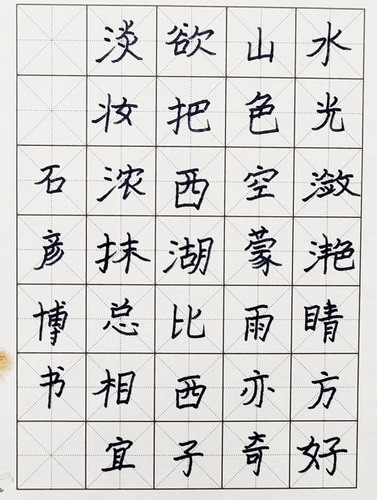 水光潋滟睛方好
山色空蒙雨亦奇
欲把西湖比西子
淡妆浓抹总相宜
石彦博书